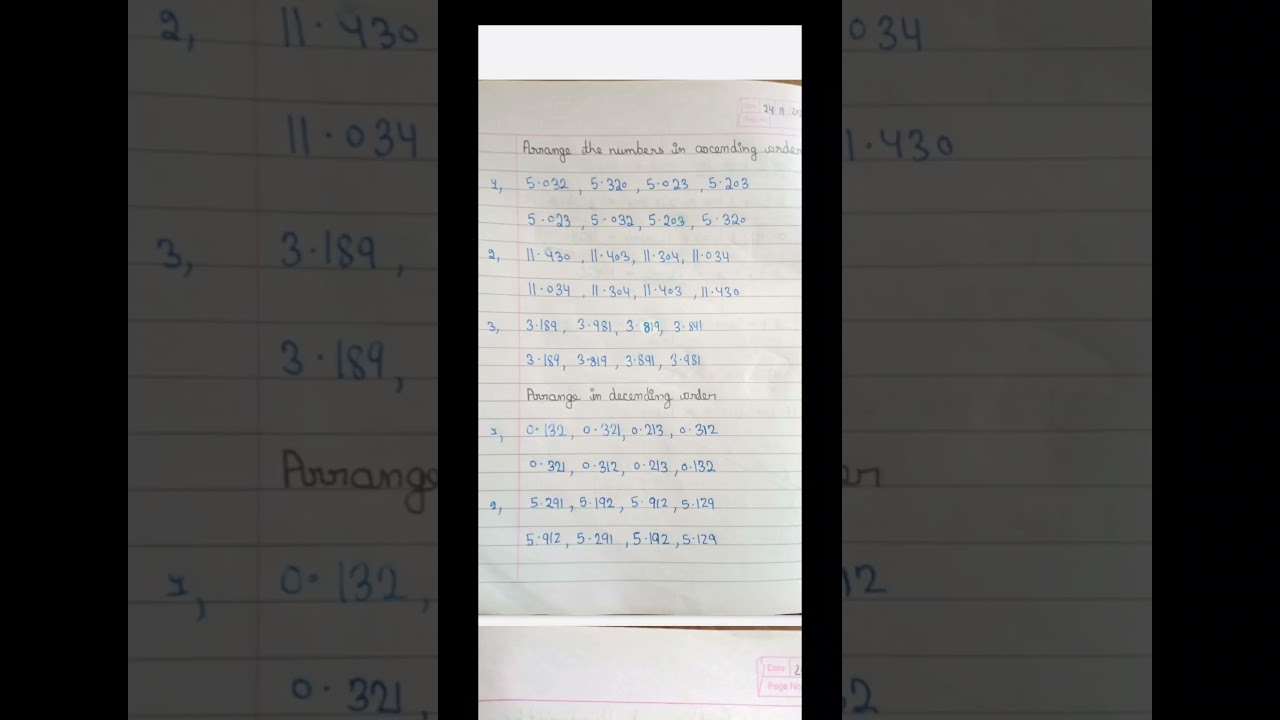 24 11
Arrange the numbers in ascending order
1, 5.032 , 5.320 , 5.023 , 5.203
5.023 , 5.032 , 5.203 , 5.320
2, 11.430 , 11.403, 11.304, 11.034
11.034 , 11.304, 11.403 , 11.430
3, 3.189, 3.981, 3.819, 3.891
3.189, 3.819 , 3.891 , 3.981
Arrange in decending order
1, 0.132, 0.321, 0.213 , 0.312
0.321, 0.312, 0.213 , 0.132
2, 5.291 , 5.192 , 5.912 , 5.129
5.912 , 5.291 , 5.192 , 5.129
Date
Page No
2, 11.430
11.034
3, 3.189,
3.189,
Arrange
1, 0.132,
0.321,
034
1.430
er
12